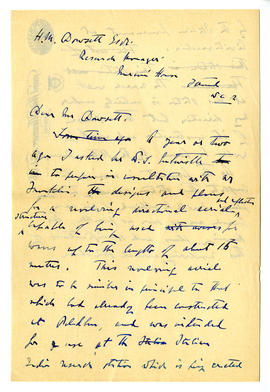 H. M. Dowsett Esqr.
Research Manager
Marconi House
Strand
W.C. 2.
Dear Mr Dowsett,
Some time ago A year or two
ago I asked Mr R.J.
to prepare, in consultation with Mr
Franklin designs and plans
for a revolving directional aerial, and reflector
structure capable of being used with waves for
waves up to the length of about 15
metres. This revolving aerial
was to be similar in principle to that
which had already been constructed
at Poldhu, and was intended
for use at the Italian Station
India research station which is being erected